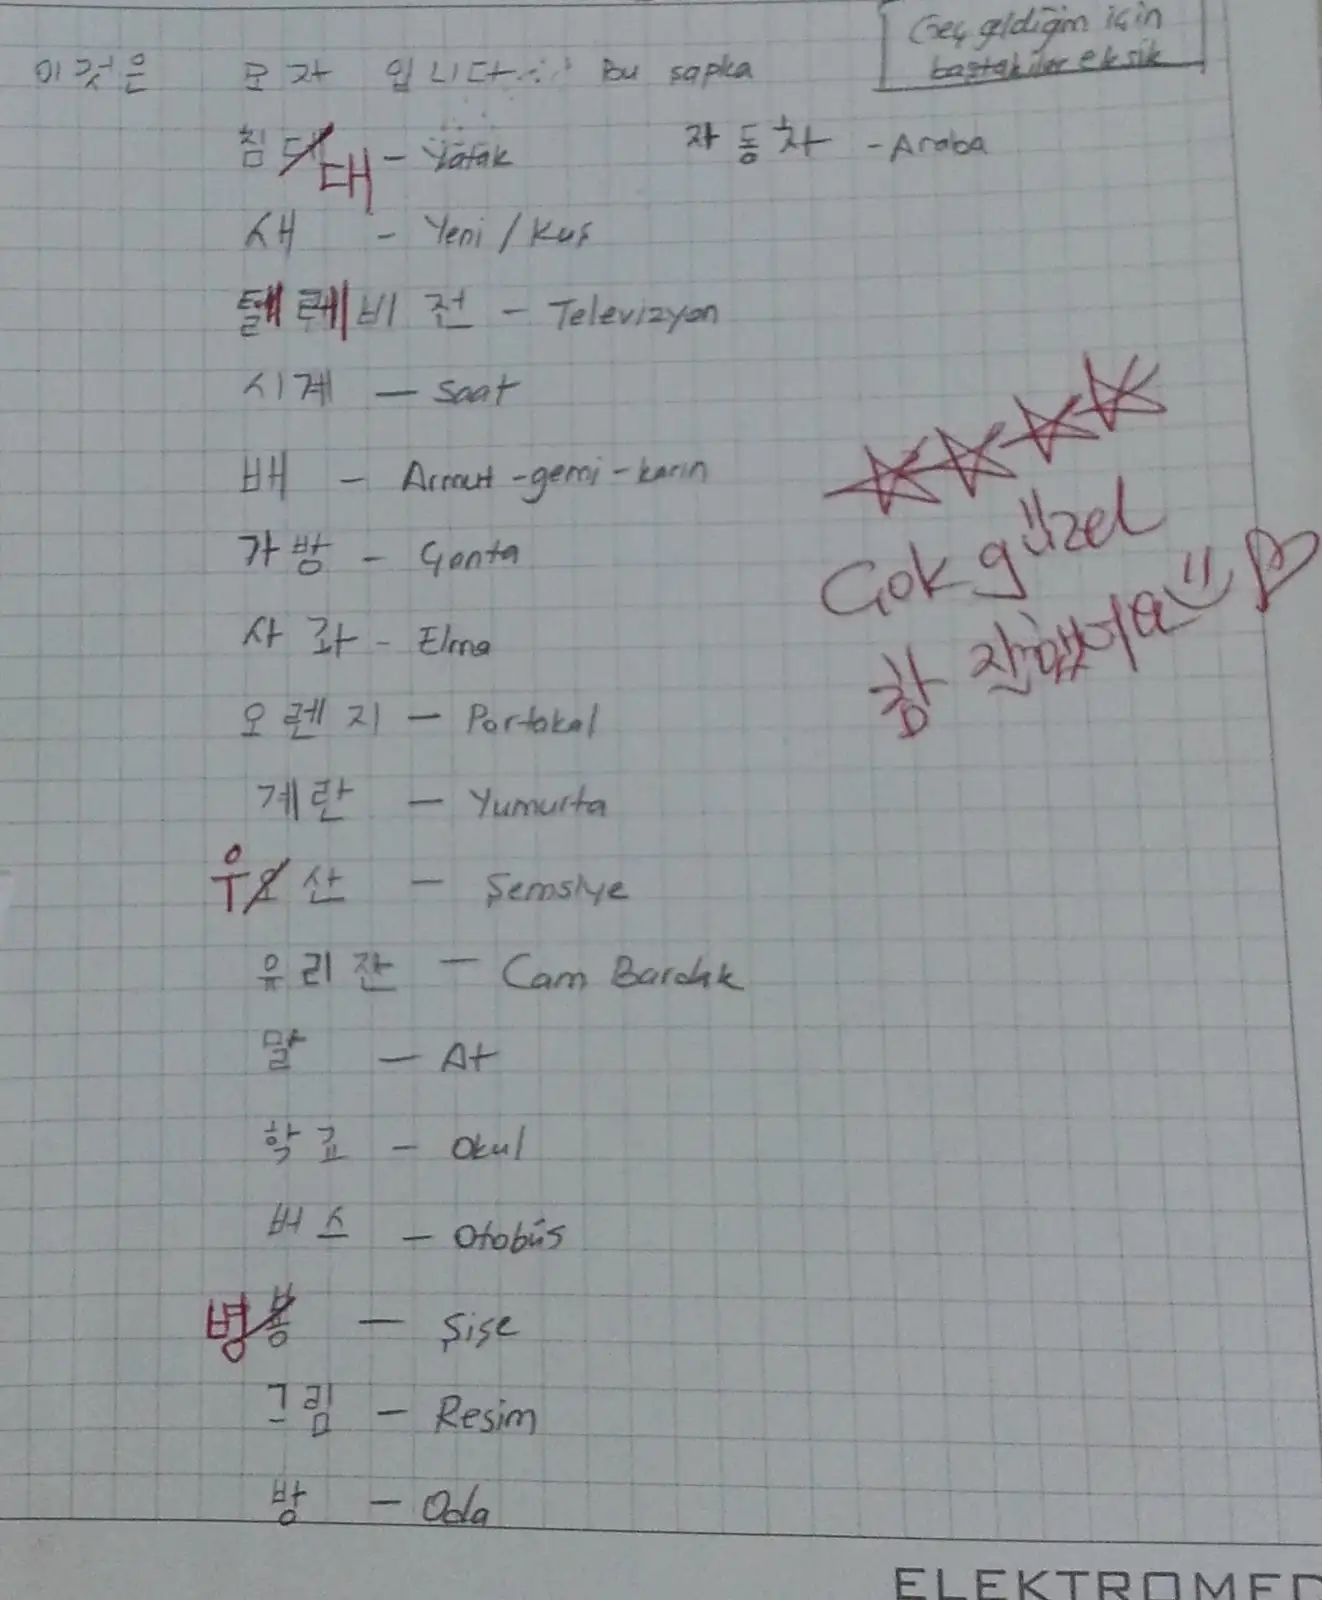 Geç geldiğim için
baştakiler eksik
이것은 모자 입니다 Bu şapka
침대 - Yatak 자동차 - Araba
새 - Yeni / Kuş
텔레비전 - Televizyon
시계 - Saat
배 - Armut - gemi - karın
가방 - Çanta
사과 - Elma
오렌지 - Portakal
계란 - Yumurta
우산 - Şemsiye
유리잔 - Cam Bardak
말 - At
학교 - Okul
버스 - Otobüs
병 - Şişe
그림 - Resim
방 - Oda
Çok güzel
참 잘했어요
ELEKTROMED